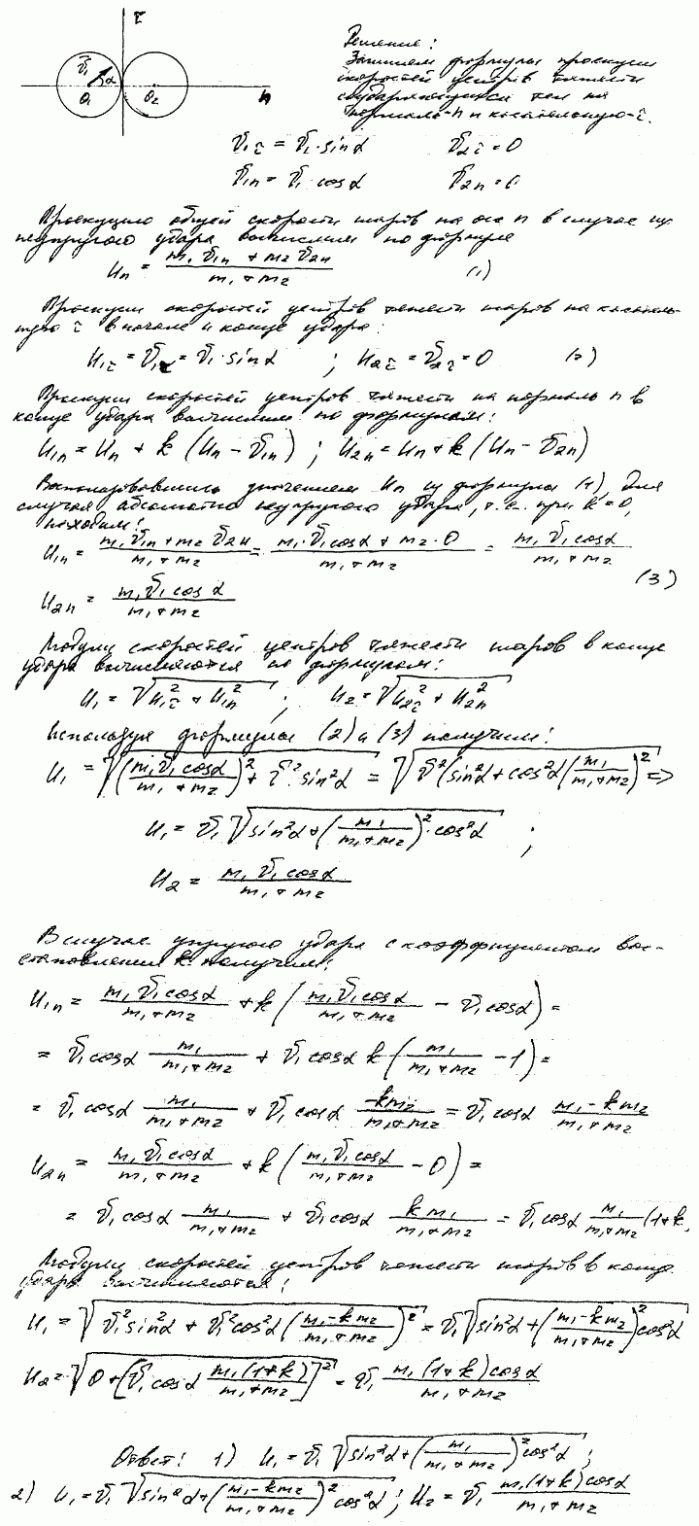 τ
v̄₁
α
O₁
O₂
n
Решение:
Запишем формулы проекции
скоростей центров тяжести
соударяющихся тел на
нормаль-n и касательную-τ.
v₁τ = v₁·sinα v₂τ = 0
v₁n = v₁·cosα v₂n = 0
Проекцию общей скорости шаров на ось n в случае
неупругого удара вычислим по формуле
Uₙ = (m₁v₁n + m₂v₂n)/(m₁+m₂) (1)
Проекции скоростей центров тяжести шаров на касатель-
ную τ в начале и конце удара:
U₁τ = v₁τ = v₁·sinα ; U₂τ = v₂τ = 0 (2)
Проекции скоростей центров тяжести на нормаль n в
конце удара вычислим по формулам:
U₁n = Uₙ + k(Uₙ - v₁n) ; U₂n = Uₙ + k(Uₙ - v₂n)
Воспользовавшись значением Uₙ из формулы (1) для
случая абсолютно неупругого удара, т.е. при k=0,
находим:
U₁n = (m₁v₁n + m₂v₂n)/(m₁+m₂) = (m₁·v₁cosα + m₂·0)/(m₁+m₂) = (m₁v₁cosα)/(m₁+m₂)
(3)
U₂n = (m₁v₁cosα)/(m₁+m₂)
Модули скоростей центров тяжести шаров в конце
удара вычисляются по формулам:
U₁ = √(U₁τ² + U₁n²) ; U₂ = √(U₂τ² + U₂n²)
Используя формулы (2) и (3) получим:
U₁ = √((m₁v₁cosα/(m₁+m₂))² + v²·sin²α) = √(v²(sin²α + cos²α(m₁/(m₁+m₂))²) =>
U₁ = v₁√(sin²α + (m₁/(m₁+m₂))²·cos²α) ;
U₂ = (m₁v₁cosα)/(m₁+m₂)
В случае упругого удара с коэффициентом вос-
становления k получим:
U₁n = (m₁v₁cosα)/(m₁+m₂) + k((m₁v₁cosα)/(m₁+m₂) - v₁cosα) =
= v₁cosα m₁/(m₁+m₂) + v₁cosα k(m₁/(m₁+m₂) - 1) =
= v₁cosα m₁/(m₁+m₂) + v₁cosα (-km₂)/(m₁+m₂) = v₁cosα (m₁-km₂)/(m₁+m₂)
U₂n = (m₁v₁cosα)/(m₁+m₂) + k((m₁v₁cosα)/(m₁+m₂) - 0) =
= v₁cosα m₁/(m₁+m₂) + v₁cosα km₁/(m₁+m₂) = v₁cosα m₁/(m₁+m₂) (1+k
Модули скоростей центров тяжести шаров в конце
удара вычисляются:
U₁ = √(v₁²sin²α + v₁²cos²α((m₁-km₂)/(m₁+m₂))²) = v₁√(sin²α + ((m₁-km₂)/(m₁+m₂))²cos²α)
U₂ = √(0 + [v₁cosα m₁(1+k)/(m₁+m₂)]²) = v₁ m₁(1+k)cosα/(m₁+m₂)
Ответ: 1) U₁ = v₁√(sin²α + (m₁/(m₁+m₂))²cos²α) ;
2) U₁ = v₁√(sin²α + ((m₁-km₂)/(m₁+m₂))²cos²α) ; U₂ = v₁ m₁(1+k)cosα/(m₁+m₂)